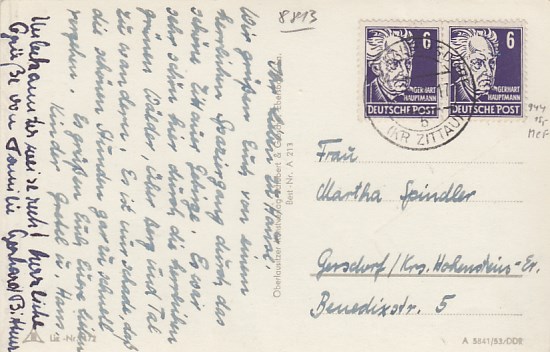 8813
Wir grüßen Euch von einem
herrlichen Spaziergang durch das
schöne Zittauer Gebirge. Es ist
sehr schön hier durch die herrlichen
grünen Wälder, über Berg und Tal
zu wandern. Es ist nur schade, daß
die schönen Stunden gar zu schnell
vergehen. Es grüßen Euch Eure lieben
Kinder Gretel u. Hans.
Unbekannterweise recht herzliche
Grüße von Familie Gerhard
Best-Nr. A 213
6
6
GERHART
HAUPTMANN
DEUTSCHE POST
GERHART
HAUPTMANN
DEUTSCHE POST
(KR ZITTAU)
Frau
Martha Spindler
Gersdorf/Krs. Hohenstein-Er.
Benedixstr. 5
A 5841/53/DDR